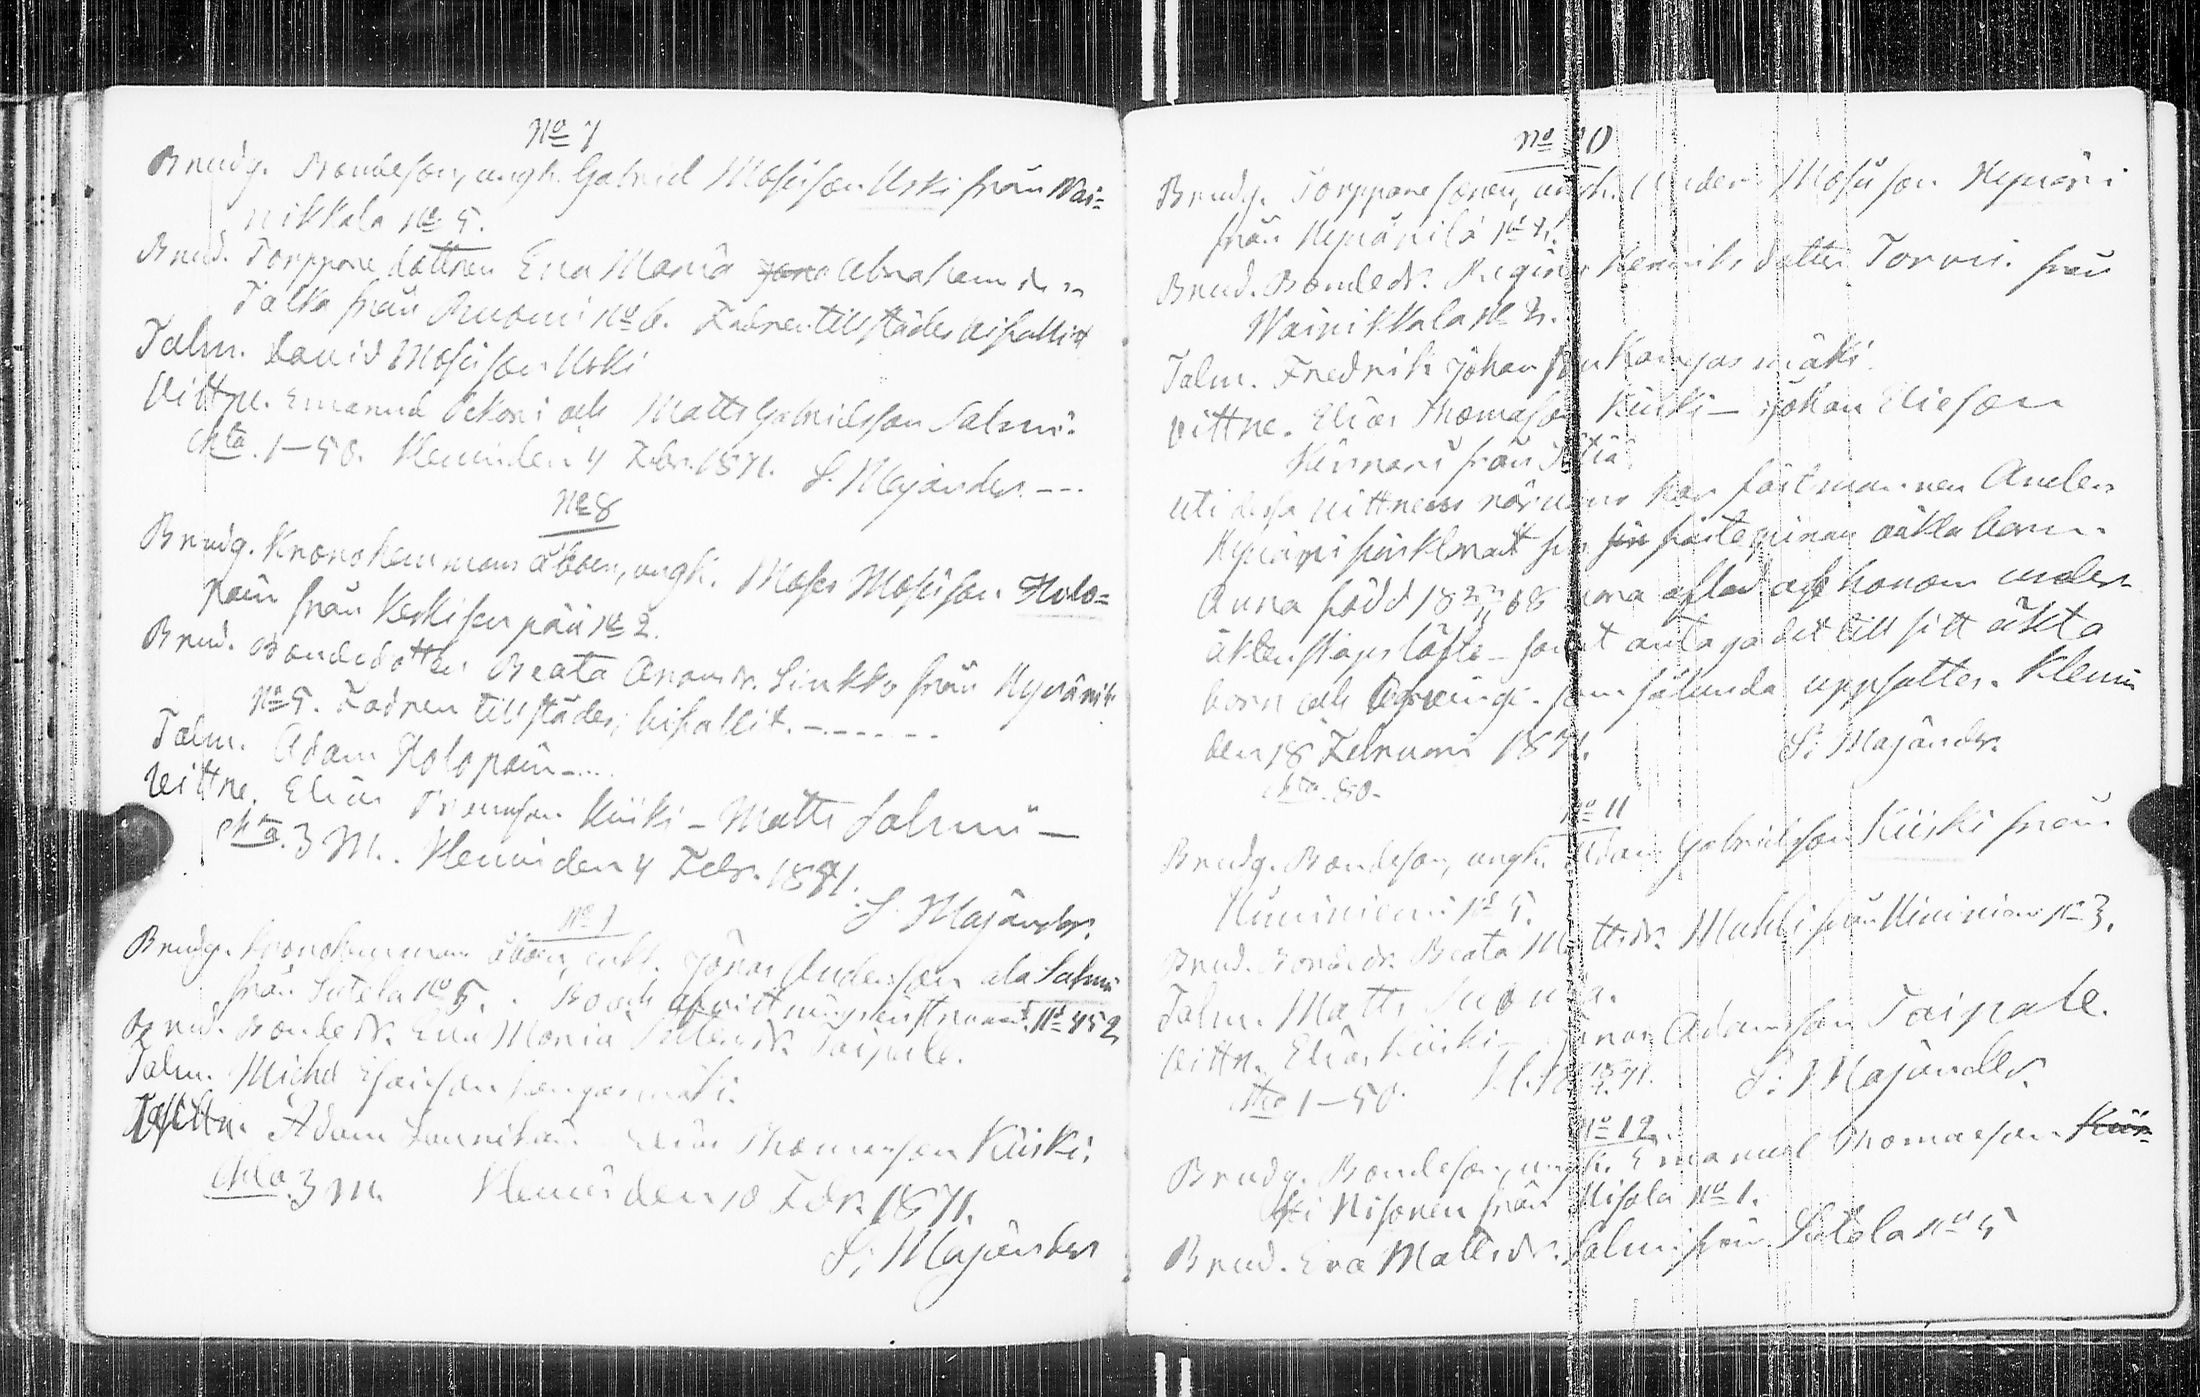 No 7
Brudg. Bondeson, ungk. Gabriel Mosisson Uski från Wai=
nikkala No 5.
Brud. Torppare dottren Eva Maria Abrahams dr
Talka från Ruomi No 6. Fadren tillstädes bifallit
Talm. David Mosisson Uski
Vittne. Emanuel Pekoni och Matts Gabrielsson Salmi.
1–50. Klemis den 4 Febr. 1871. S. Majander. ---
No 8
Brudg. Kronohemmans åboen, ungk. Moses Mosisson Holo=
pain från Keskisenpää No 2.
Brud. Bondedotter Beata Adamsdr. Sinkko från Hyvärilä
No 5. Fadren tillstädes, bifallit. -------
Talm. Adam Holopain ---
Vittne. Elias Thomasson Kiiski – Matts Salmi –
3 M. Klemis den 4 Febr. 1871.
S. Majander.
Brudg. Kronohemmans åboen, enkl. Jonas Andersson Ala Salmi
från Sutela No 5. Bo och afvittringsinstrument No 452
Brud. Bondedr. Eva Maria Taipale.
Talm. Michel Esaisson Kangasmäki.
Adam Lannikain Elias Thomasson Kiiski.
3 M. Klemis den 10 Febr. 1871.
S. Majander
No 10
Brudg. Torppare sonen, ungk. Anders Mosisson Hyväri
från Hyvärilä No 4.
Brud. Bondedr. Regina Henriks dotter Torvi. från
Wainikkala No 2.
Talm. Fredrik Johansson Kangasmäki.
Vittne. Elias Thomasson Kiiski – Johan Eliesson
Kinnari från
Uti dessa vittnens närvaro har fästmannen Anders
Hyväri förklarat sin fästeqvinnas oäkta barn
Anna född 18 68 vara aflad af honom under
äktenskapslöfte – samt antaga det till sitt äkta
barn och Arfvinge. som sålunda uppsattes. Klemis
den 18 Februari 1871. S. Majander.
80.
No 11
Brudg. Bondeson, ungk. Adam Gabrielsson Kiiski från
Hiininiemi No 5.
Brud. Bondedr. Beata Mattsdr. Muhli från Hiininiemi No 3.
Talm. Matts
Vittn. Elias Kiiski – Jonas Adamsson Taipale.
1–50. S. Majander.
No 12
Brudg. Bondeson, ungk. Emanuel Thomasson Kiis-
ki Nisonen från Nisola No 1.
Brud. Eva Mattsdr. Salmi från Sutela No 5